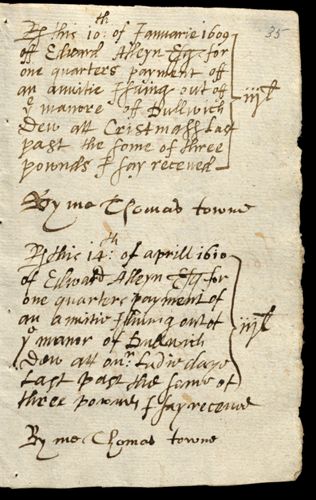 35
this 10th: of Januarie 1609
off Edward Alleyn Esq. for
one quarters payment off
an anuitie Isuing out off
ye manore of Dullwich
dew att Cristmass Last
past the some of three
pownds I say receved
iiil
By me Thomas towne
this 14th: of aprill 1610
of Edward Alleyn Esq for
one quarters payment of
an anuitie Isuing out of
ye manor of Dullwich
dew att our Ladie daye
Last past the some of
three pownds I say receved
iiil
By me Thomas towne